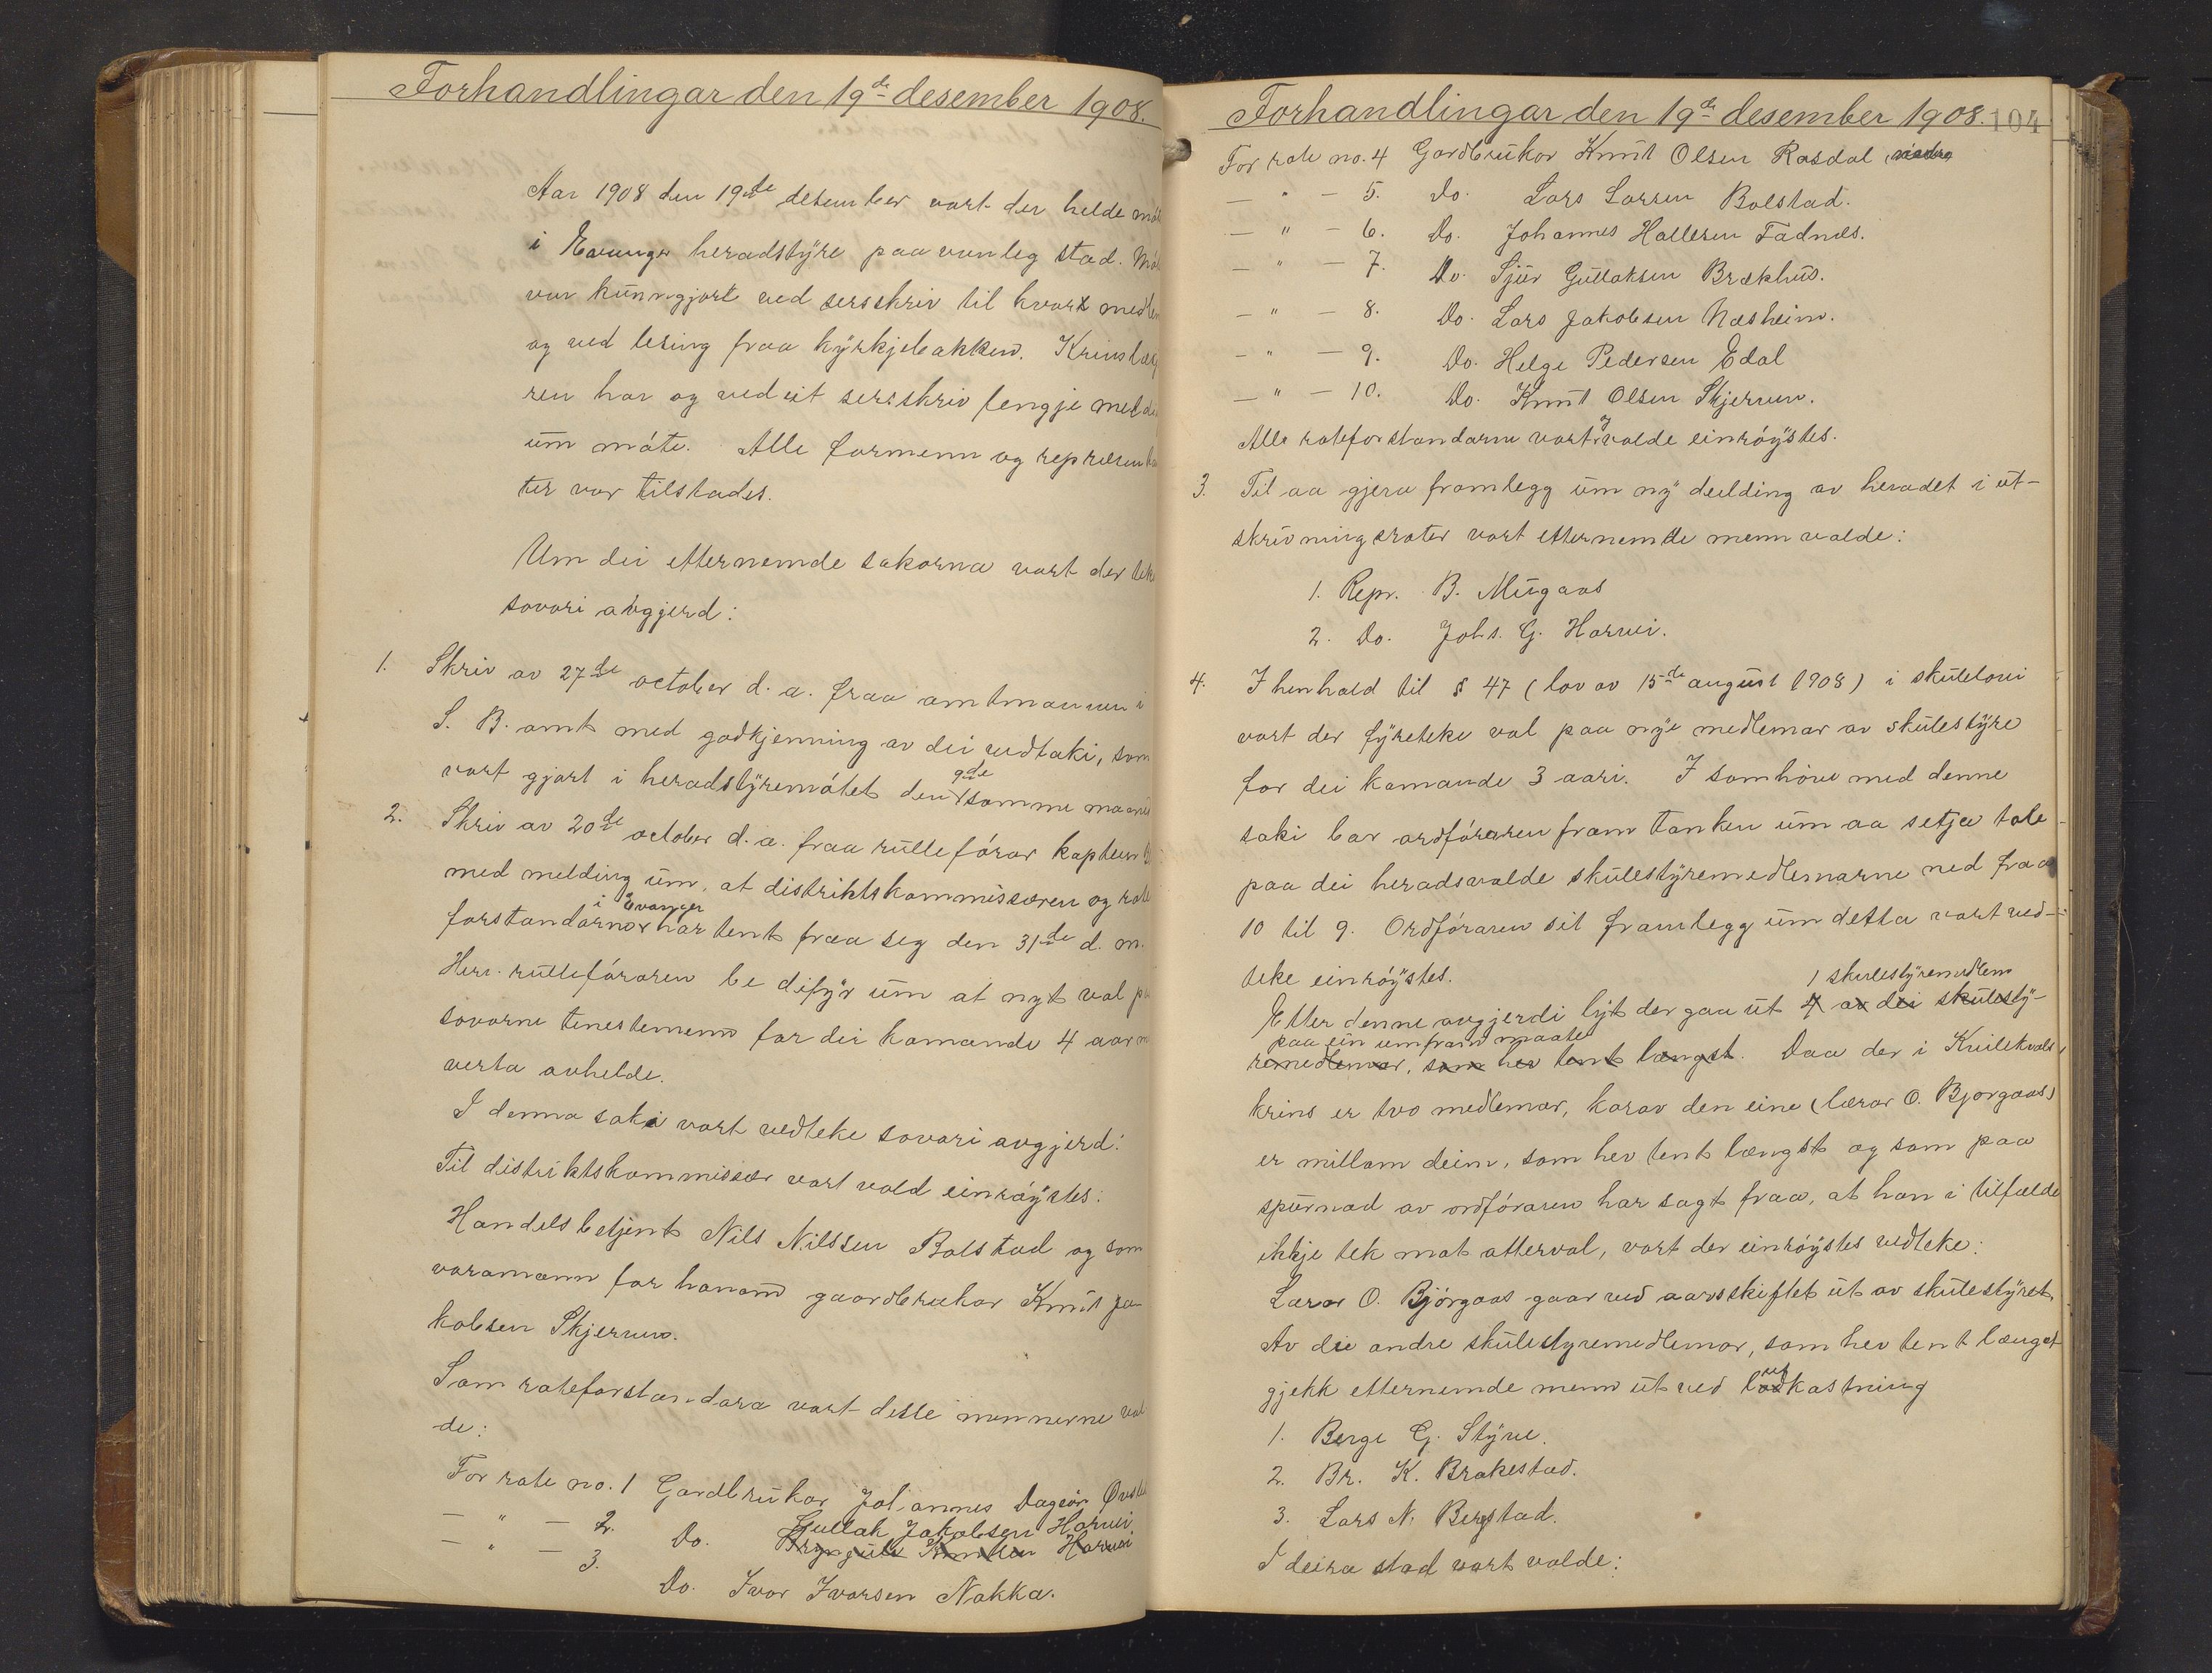 Forhandlingar den 19de desember 1908.
Aar 1908 den 19de desember vart der helde
i Evanger heradstyre paa vanleg stad.
var kunngjort ved sersskriv til kvart
og ved lesing fraa kyrkjebakken.
ren har og ved eit sersskriv fengje
um móte. Alle formenn og
ter var tilstades.
Um dei etternemde sakorna vart der
sovori avgjerd:
1. Skriv av 27de october d. a. fraa amtmannen i
S. B. amt med godkjenning av dei vedtaki, som
vart gjort i heradstyremótet den 9de somme
2. Skriv av 20de october d. a. fraa rulleførar kaptein
med melding um, at distriktskommissæren og
forstandarne i Evanger har tent fraa seg den 31de d. m.
Herr. rulleføraren be difyr um at nyt val
sovorne tenestemenn for dei komande 4 aar
verta avhelde.
I denna saki vart vedteke sovori avgjerd:
Til distriktskommissær vart vald einróystes:
Handelsbetjent Nils Nilssen Bolstad og som
varamann for honom gaardbrukar Knut Ja-
kobsen Skjerven.
Som roteforstandara vart desse mennerne val
de:
For rote no. 1 Gardbrukar Johannes Dagson
— " — 2. Do. Gullak Jakobsen Horvei
Brynjulv Knutsen Horvei
— " — 3. Do. Ivar Ivarsen Nakka.
Forhandlingar den 19de desember 1908. 104
For rote no. 4 Gardbrukar Knut Olsen Rasdal
— " — 5. Do. Lars Larsen Bolstad.
— " — 6. Do. Johannes Hallesen Fadnes.
— " — 7. Do. Sjur Gullaksen Brækhus.
— " — 8. Do. Lars Jakobsen Næsheim.
— " — 9. Do. Helge Pedersen Edal
— " — 10. Do. Knut Olsen Skjerven.
Alle roteforstandarne vart og valde einróystes.
3. Til aa gjera framlegg um ny deilding av heradet i ut-
skrivningsroter vart etternemde menn valde:
1. Repr. B. Mugaas
2. Do. Johs. G. Horvei.
4. I henhold til § 47 (lov av 15de august 1908) i skulelovi
vart der fyreteke val paa nye medlemar av skulestyre
for dei komande 3 aari. I samhöve med denne
saki bar ordfóraren fram tanken um aa setja tale
paa dei heradsvalde skulestyremedlemarne ned fraa
10 til 9. Ordfóraren sit framlegg um detta vart ved-
teke einróystes.
Etter denne avgjerdi lyt der gaa ut 1 skulestyremedlem 4 av dei skulesty-
paa ein umfram maate
remedlemar, som hev tent længst. Daa der i Kvilekvals
krins er tvo medlemar, korav den eine (lærar O. Bjorgaas)
er millom deim, som hev tent længst og som paa
spurnad av ordfóraren har sagt fraa, at han i tilfælde
ikkje tek mot atterval, vart der einróystes vedteke:
Lærar O. Bjórgaas gaar ved aarsskiftet ut av skulestyret.
Av dei andre skulestyremedlemar, som hev tent længst
gjekk etternemde menn ut ved lutkastning
1. Berge G. Styve.
2. Br. K. Brakestad.
3. Lars N. Bergstad.
I deira stad vart valde: